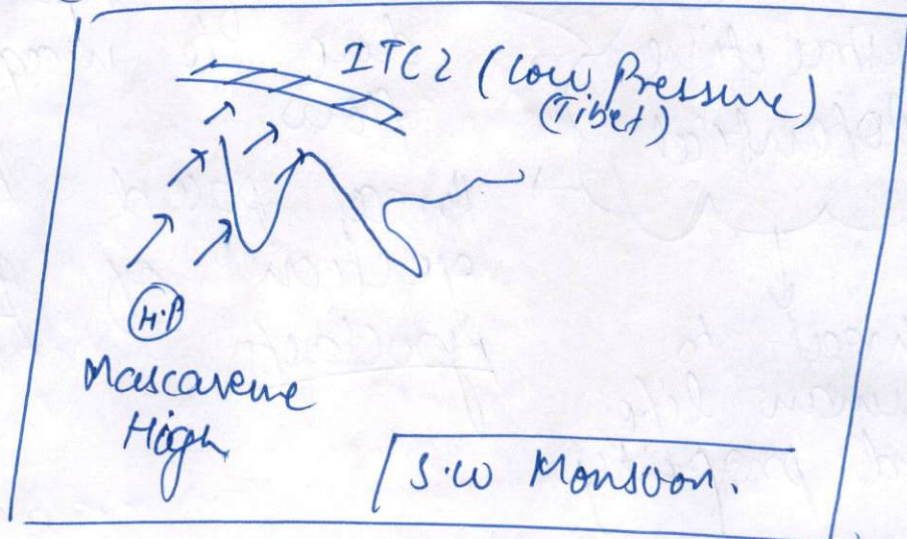 ITCZ (Low Pressure)
(Tibet)
H.P
Mascarene
High
S.W Monsoon.